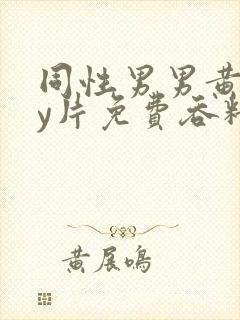 同性男男黄
y片免費吞精
黄展鳴